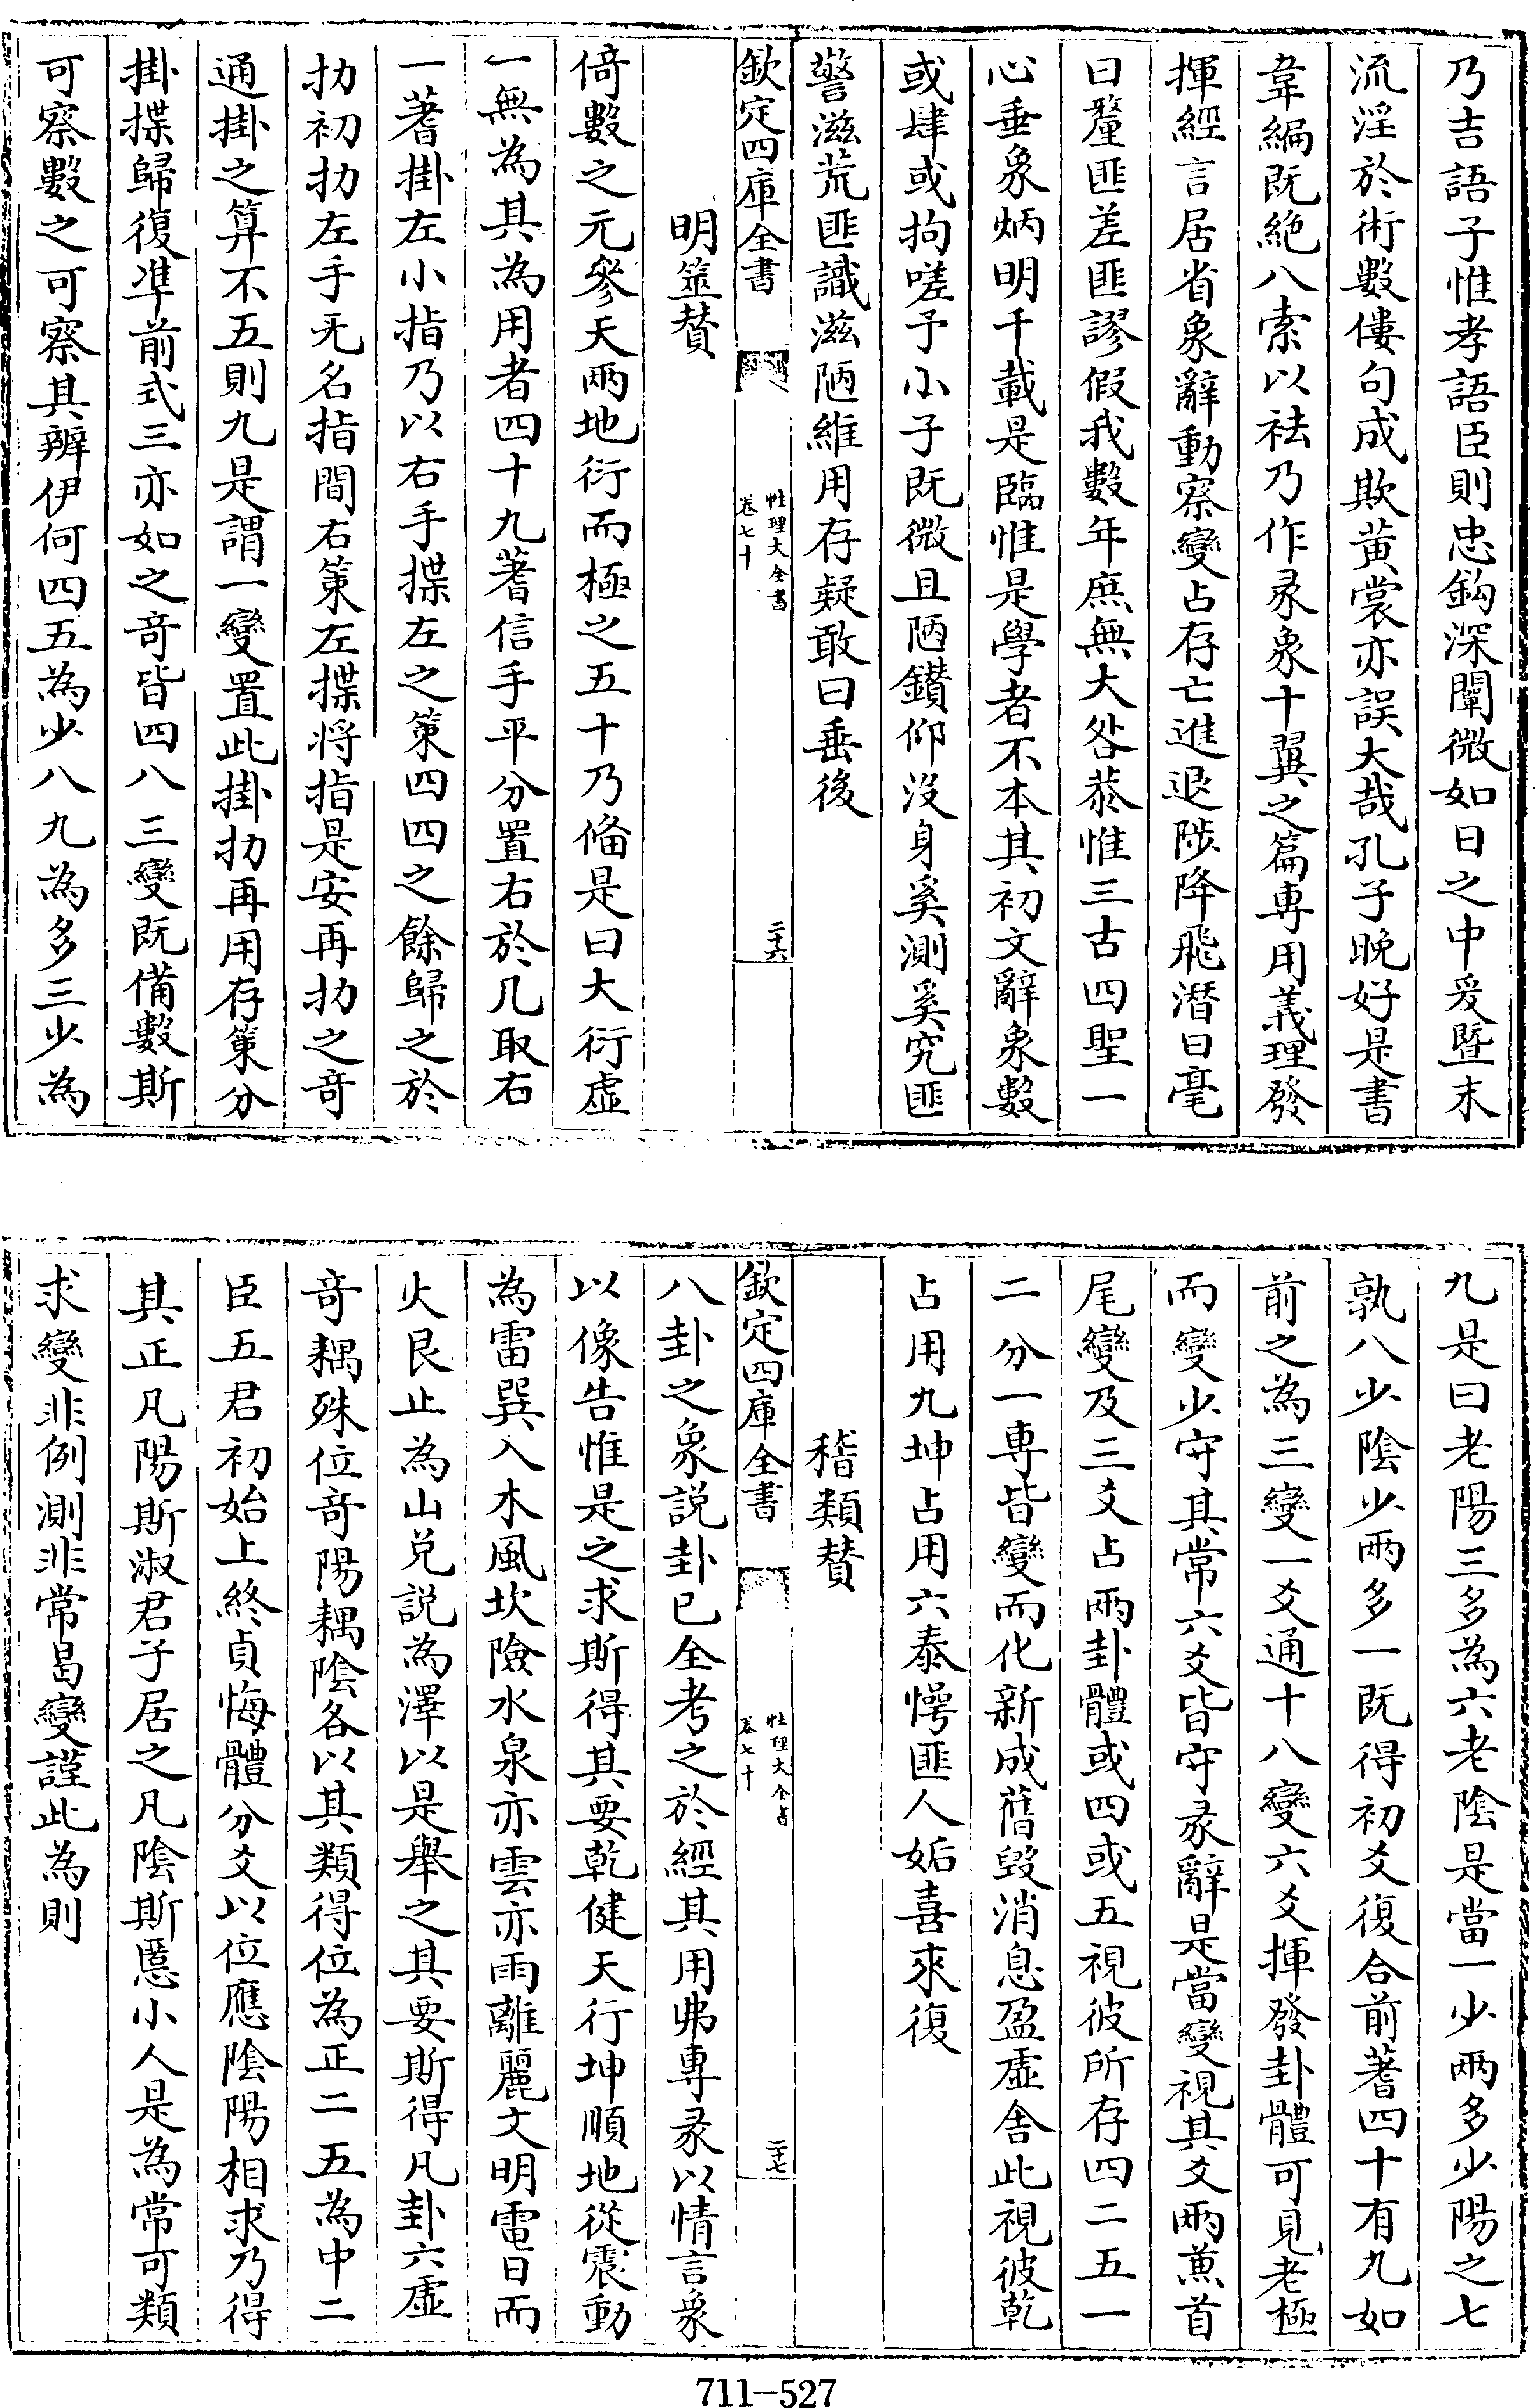 乃吉語子惟孝語臣則忠鈎深闡微如日之中爰暨末
流淫於術數僂句成欺黄裳亦誤大哉孔子晚好是書
韋編既絶八索以袪乃作彖象十翼之篇専用義理發
揮經言居省象辭動察變占存亡進退陟降飛潛曰毫
曰釐匪差匪謬假我數年庶無大咎恭惟三古四聖一
心垂象炳明千載是臨惟是學者不本其初文辭象數
或肆或拘嗟予小子既微且陋鑚仰没身奚測奚究匪
警滋荒匪識滋陋維用存疑敢曰垂後
欽定四庫全書
性理大全書
卷七十
二十六
明筮贊
倚數之元參天兩地衍而極之五十乃偹是曰大衍虚
一無為其為用者四十九蓍信手平分置右於几取右
一蓍掛左小指乃以右手揲左之策四四之餘歸之於
扐初扐左手无名指間右策左揲将指是安再扐之奇
通掛之算不五則九是謂一變置此掛扐再用存策分
掛揲歸復凖前式三亦如之奇皆四八三變既備數斯
可察數之可察其辨伊何四五為少八九為多三少為
九是曰老陽三多為六老隂是當一少兩多少陽之七
孰八少隂少兩多一既得初爻復合前蓍四十有九如
前之為三變一爻通十八變六爻揮發卦體可見老極
而變少守其常六爻皆守彖辭是當變視其爻兩兼首
尾變及三爻占兩卦體或四或五視彼所存四二五一
二分一専皆變而化新成舊毁消息盈虚舎此視彼乾
占用九坤占用六泰愕匪人姤喜來復
稽類贊
欽定四庫全書
性理大全書
卷七十
二十七
八卦之象説卦已全考之於經其用弗專彖以情言象
以像告惟是之求斯得其要乾健天行坤順地從震動
為雷巽入木風坎險水泉亦雲亦雨離麗文明電日而
火艮止為山兑説為澤以是舉之其要斯得凡卦六虚
奇耦殊位奇陽耦隂各以其類得位為正二五為中二
臣五君初始上終貞悔體分爻以位應隂陽相求乃得
其正凡陽斯淑君子居之凡隂斯慝小人是為常可類
求變非例測非常曷變謹此為則
711-527